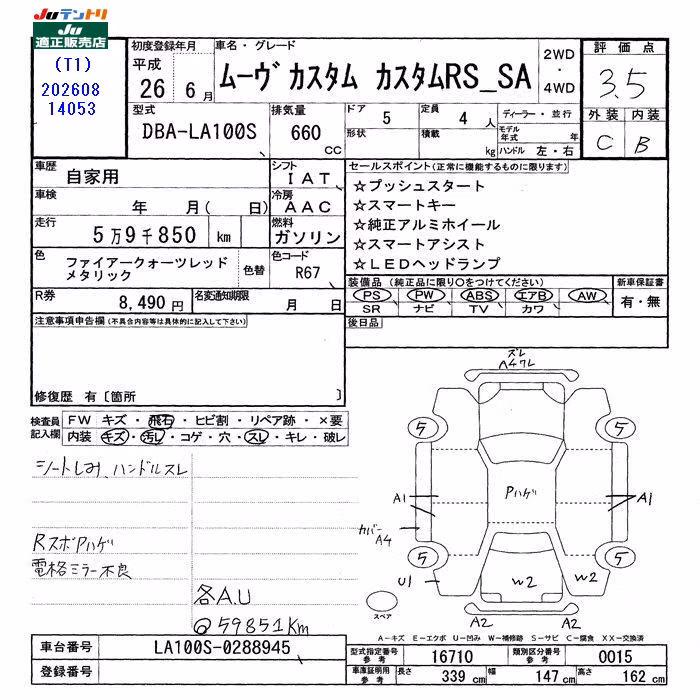 Juテントリ
Ju
適正販売店
(T1)
202608
14053
初度登録年月
平成
26 6月
車名・グレード
ムーヴ カスタム カスタムRS_SA
2WD
・
4WD
評価点
3.5
外装 内装
C B
型式
DBA-LA100S
排気量
660
CC
ドア
5
定員
4 人
形状
積載
kg
ディーラー・並行
モデル
年式 年
ハンドル 左・右
車歴
自家用
シフト
IAT
車検
年 月( 日)
冷房
AAC
走行
5万9千850 km
燃料
ガソリン
色
ファイアークォーツレッド
メタリック
色替
色コード
R67
R券
8,490 円
名変通知期限
月 日
セールスポイント(正常に機能するものに限ります)
☆プッシュスタート
☆スマートキー
☆純正アルミホイール
☆スマートアシスト
☆LEDヘッドランプ
装備品(純正品に限り○をつけてください)
PS PW ABS エアB AW
SR ナビ TV カワ
新車保証書
有・無
後日品
注意事項申告欄(不具合内容等は具体的に記入して下さい)
修復歴 有〔箇所 〕
検査員
記入欄
FW キズ・飛石・ヒビ割・リペア跡・×要
内装 キズ・汚レ・コゲ・穴・スレ・キレ・破レ
シートしみ、ハンドルスレ
RスポPハゲ
電格ミラー不良
各A.U
@59851Km
ズレ
A4ワレ
5 5
Pハゲ
A1 A1
カバー
A4
5 5
U1
W2 W2
A2 A2
スペア
A-キズ E-エクボ U-凹み W-補修跡 S-サビ C-腐食 XX-交換済
車台番号
LA100S-0288945
登録番号
型式指定番号
参考
16710
類別区分番号
参考
0015
車庫証明用
参考
長さ
339 cm
幅
147 cm
高さ
162 cm